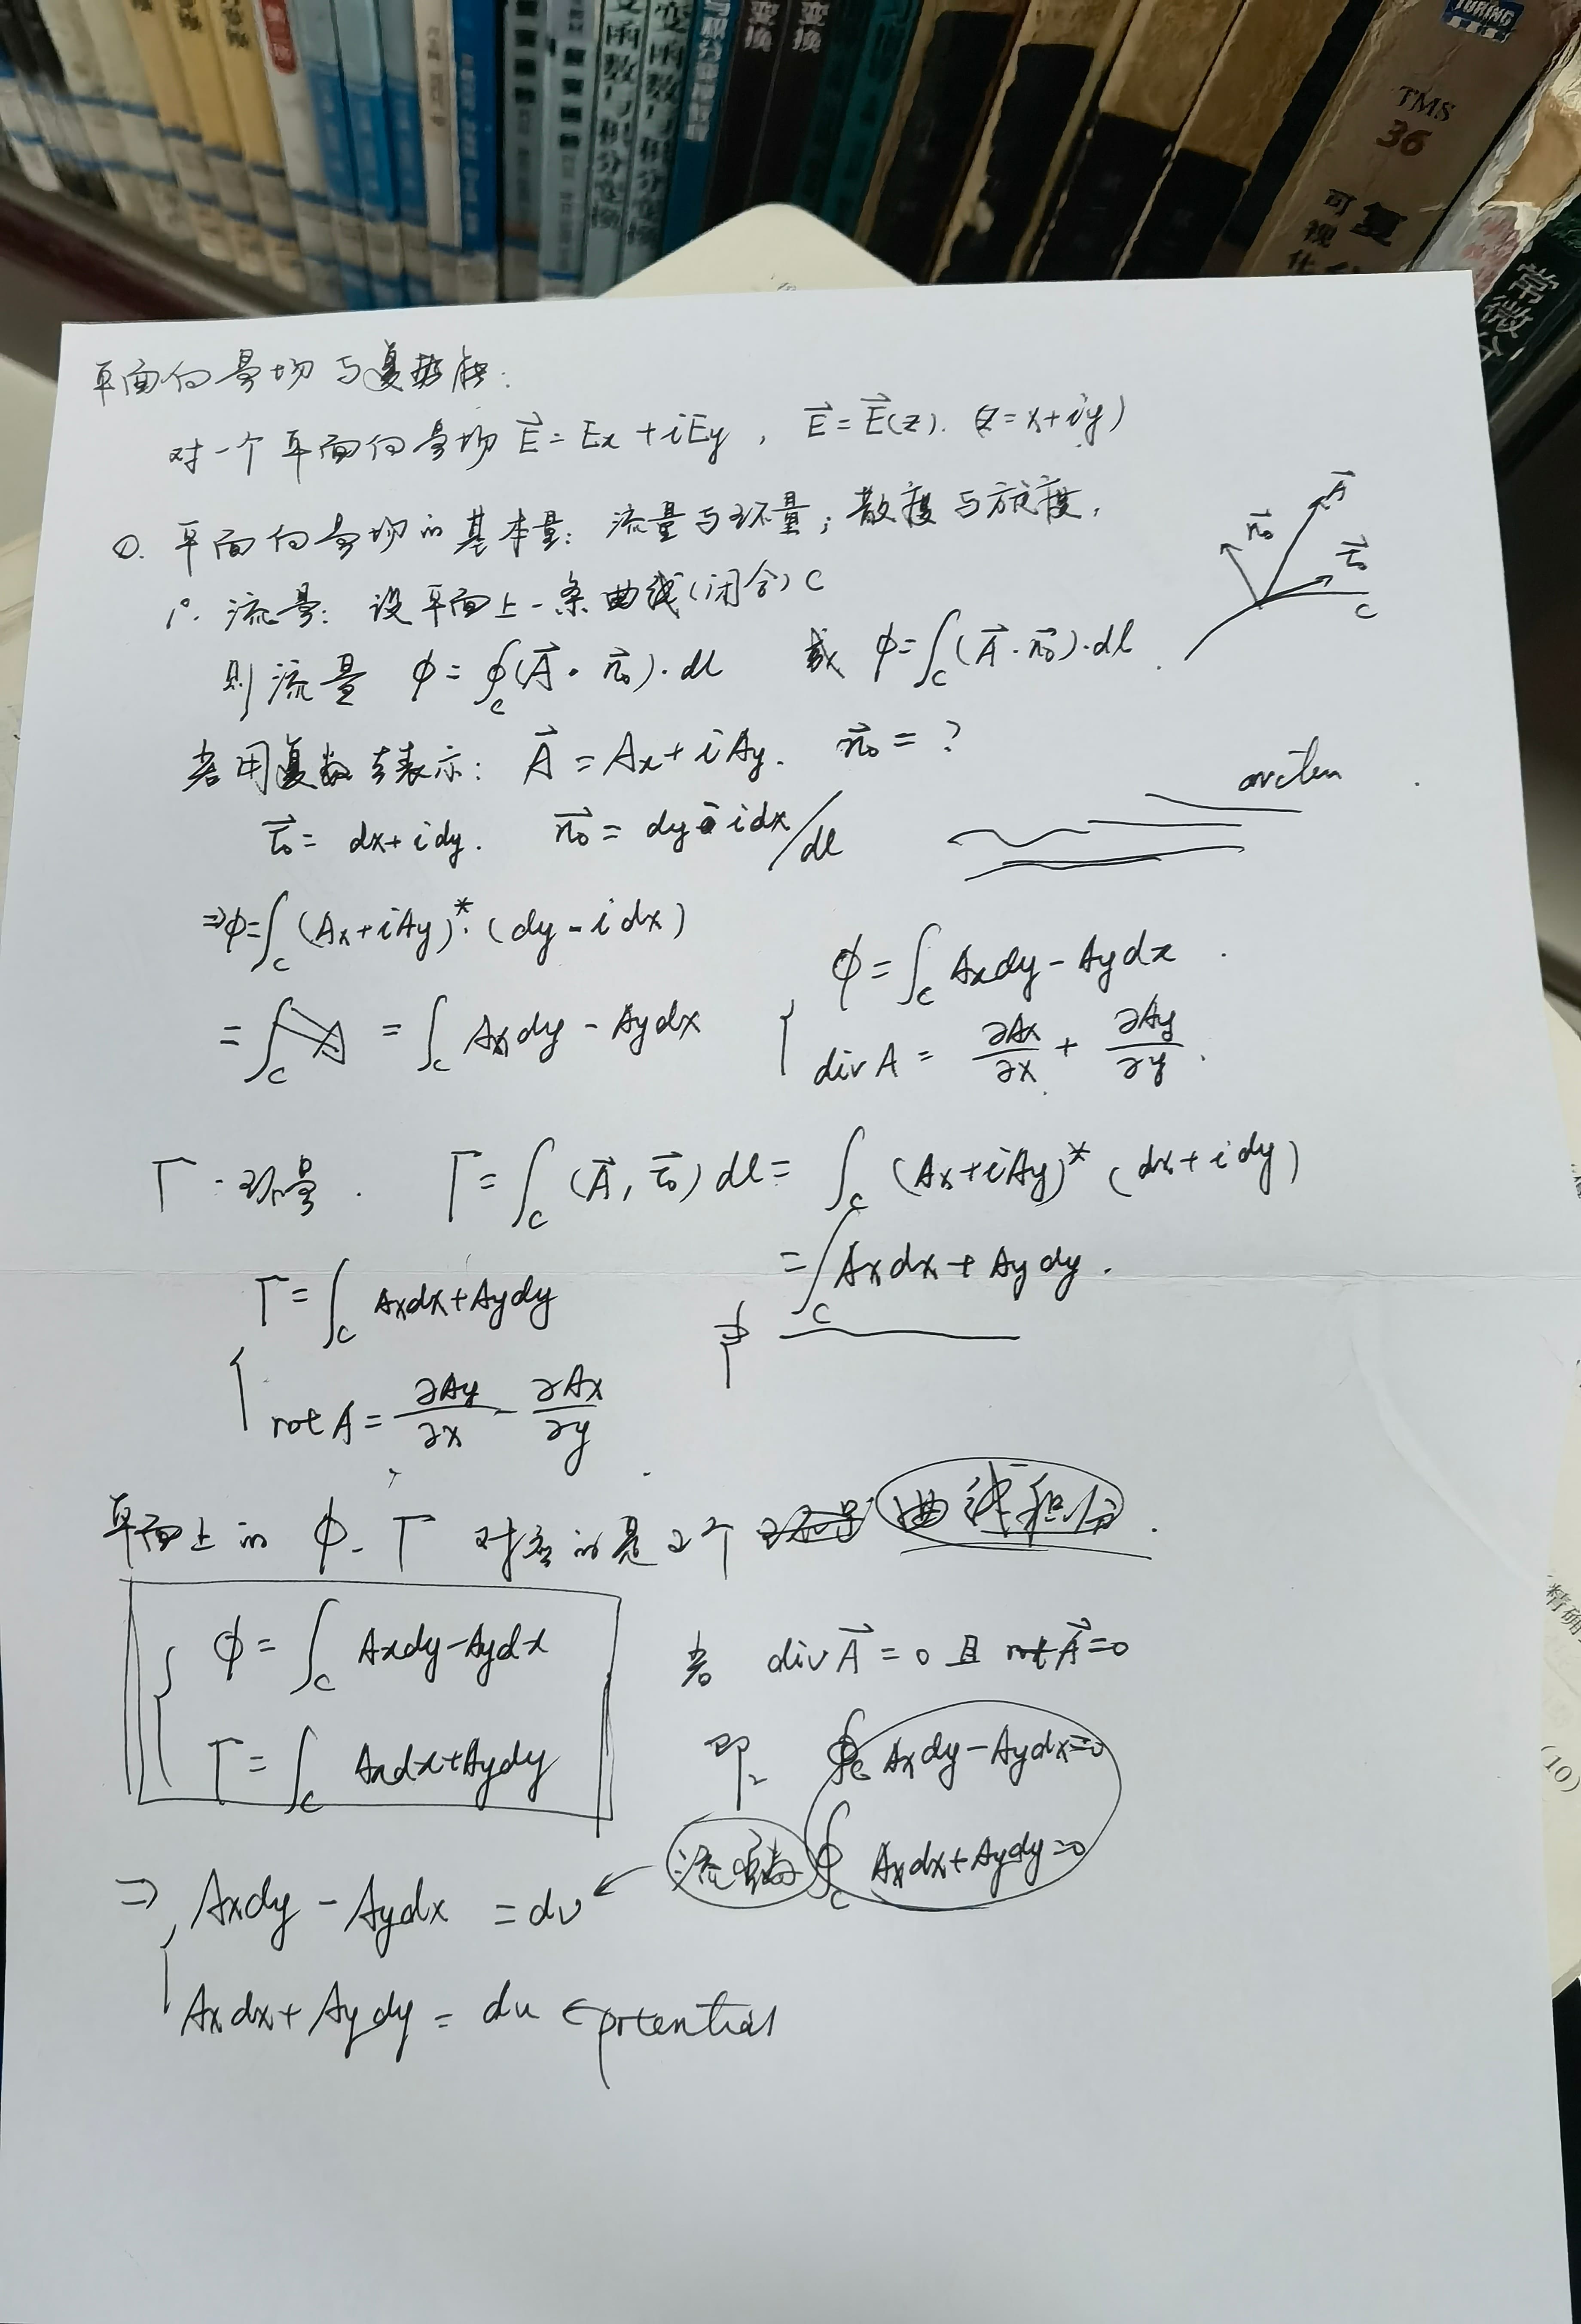 TURING
TMS
36
复
可视化
常微分
变函数与积分变换
变函数与积分变换
变换
变换
平面向量场与复势能:
对一个平面向量场 E⃗ = Ex + iEy , E⃗ = E⃗(z). (z = x+iy)
0. 平面向量场的基本量: 流量与环量; 散度与旋度.
1°. 流量: 设平面上一条曲线(闭合) C
则流量 ϕ = ∮_C (A⃗ · n⃗₀)·dl 或 ϕ = ∫_C (A⃗ · n⃗₀)·dl .
A⃗
n⃗₀
τ⃗₀
C
若用复数去表示: A⃗ = Ax + iAy. n⃗₀ = ?
arctan
τ⃗₀ = dx + idy. n⃗₀ = dy - idx / dl
⇒ ϕ = ∫_C (Ax+iAy)*·(dy - idx)
= ∫_C = ∫_C Axdy - Aydx
{ ϕ = ∫_C Axdy - Aydx .
divA = ∂Ax/∂x + ∂Ay/∂y .
Γ - 环量 . Γ = ∫_C (A⃗, τ⃗₀) dl = ∫_C (Ax+iAy)* (dx+idy)
= ∫_C Axdx + Aydy .
{ Γ = ∫_C Axdx+Aydy
rot A = ∂Ay/∂x - ∂Ax/∂y
平面上的 ϕ - Γ 对应的是2个 曲线积分 .
{ ϕ = ∫_C Axdy-Aydx
Γ = ∫_C Axdx+Aydy
若 divA⃗ = 0 且 rotA⃗ = 0
即 ∮_C Axdy-Aydx=0
∮_C Axdx+Aydy=0
⇒ { Axdy - Aydx = dv ← 流函数
Axdx + Aydy = du ← potential
精确
(10)